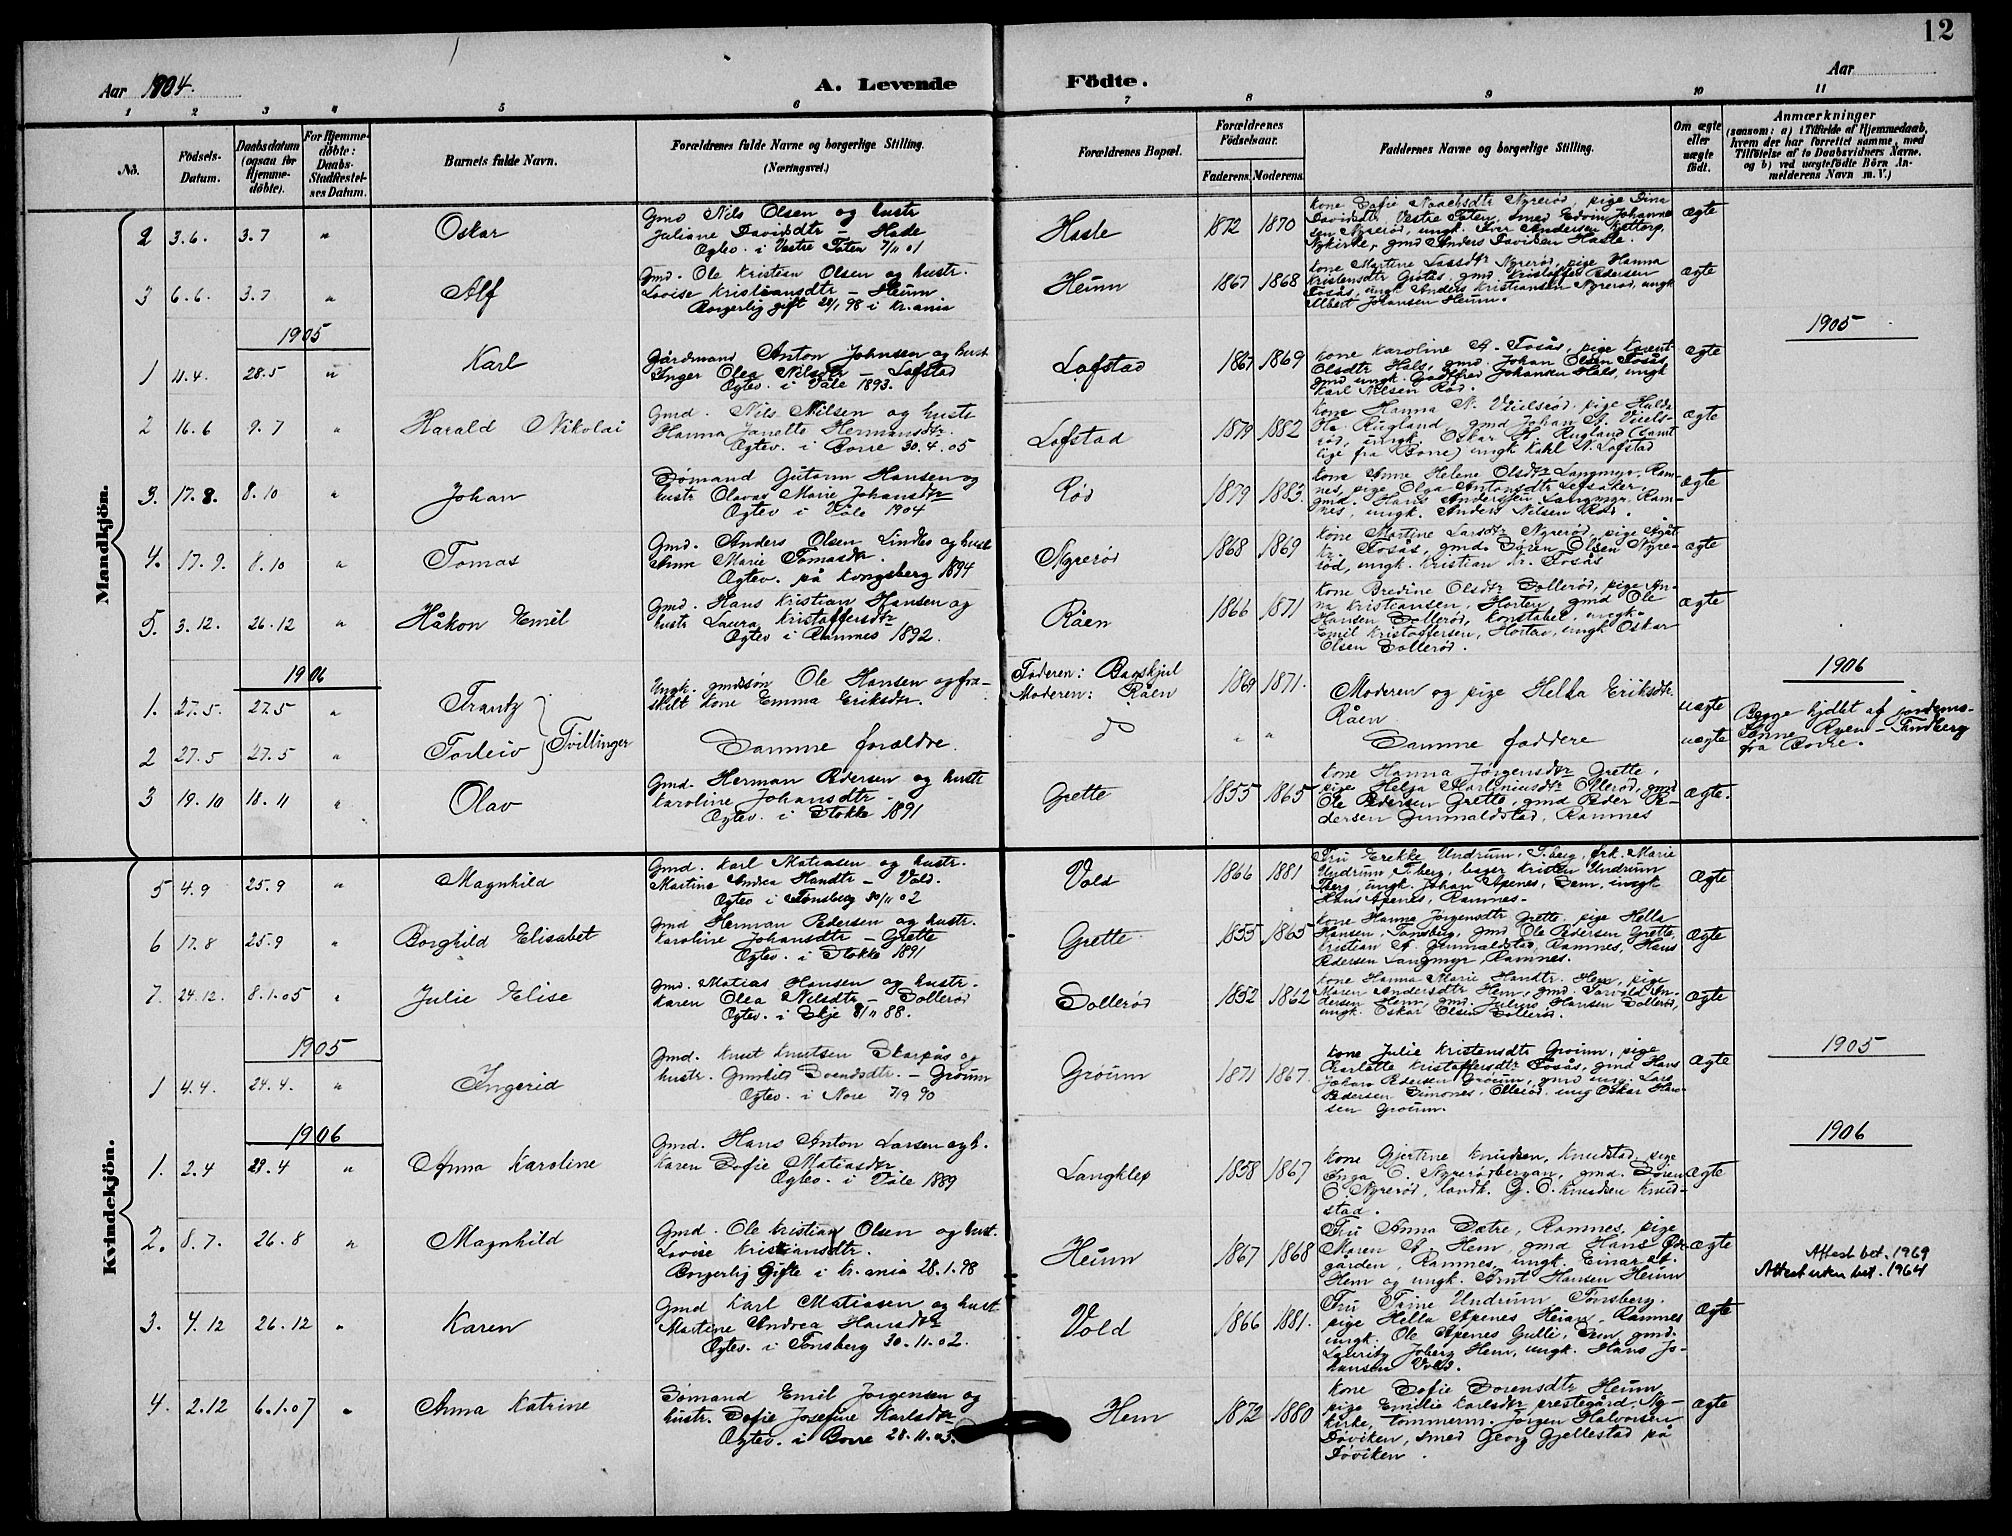 12
Aar 1904.
A. Levende Födte.
Aar
1 2 3 4 5 6 7 8 9 10 11
No.
Födsels-Datum.
Daabsdatum (ogsaa for Hjemme-döbte).
For Hjemme-döbte: Daabs-Stadfæstel-ses Datum.
Barnets fulde Navn.
Forældrenes fulde Navne og borgerlige Stilling. (Næringsvei.)
Forældrenes Bopæl.
Forældrenes Födselsaar.
Faderens. Moderens.
Faddernes Navne og borgerlige Stilling.
Om ægte eller uægte födt.
Anmærkninger
(saasom: a) i Tilfælde af Hjemmedaab,
hvem der har forrettet samme, med
Tilföielse af to Daabsvidners Navne,
og b) ved uægtefödte Börn An-
melderens Navn m. V.)
Mandkjön.
2 3.6. 3.7 " Oskar
Gmd Nils Olsen og hustr
Juliane Davidsdtr – Hasle
Ogtev. i Vestre Toten 7/11 01
Hasle 1872 1870
kone Sofie Nyrerød, pige Dina
Davidsdtr, Vestre Toten, smed Edvin Johanne
sen Nyrerød, ungk. Iver Andersen
Nykirke, gmd Anders Davidsen Hasle.
ægte
3 6.6. 3.7 " Alf
Gmd. Ole Kristian Olsen og hustr.
Lovise Kristiansdtr – Heum
Borgerlig gift 28/1 98 i Kr.ania
Heum 1867 1868
kone Martine Larsdtr Nyrerød, pige Hanna
Kristensdtr gmd. Kristoffer Pedersen
Fosås, ungk Anders Kristiansen Nyrerød, ungk
Albert Johansen Heum.
ægte
1905
1905
1 11.4. 28.5 " Karl
Gårdmand Anton Johnsen og hust
Inger Olea Nilsdtr – Lofstad
Ogtev. i Våle 1893.
Lofstad 1867 1869
kone Karoline A. Fosås, pige
Olsdtr Hals, gmd. Johan Olsen Fosås
gmd ungk. Godtfred Johansen Hals, ungk
Karl Nilsen Rød.
ægte
2 16.6 9.7 " Harald Nikolai
Gmd. Nils Nilsen og hustr
Hanna Janette Hermansdtr.
Ogtev. i Borre 30.4.05
Lofstad 1879 1882
kone Hanna N. pige Hulda
Rugland, gmd Johan A.
rød, ungk. Oskar H. Rugland (samt
lige fra Borre) ungk Kahl N. Lofstad
ægte
3. 17.8. 8.10 " Johan
Sømand Hansen og
hustr Marie Johansdtr
Ogtev i Våle 1904
Rød 1879 1883.
kone Anne Helene Olsdtr Langmyr, Ram-
nes, pige Olga Antonsdtr
gmd. Hans Andersen Langmyr. Ram-
nes, ungk. Anders Nilsen Rød.
ægte
4. 17.9. 8.10 " Tomas
Gmd. Anders Olsen og hustr
Anne Marie Tomasdtr.
Ogtev. på Kongsberg 1894
Nyrerød 1868 1869
kone Martine Larsdtr Nyrerød, pige
Kr. Fosås, gmd. Søren Olsen Nyre-
rød, ungk. Kristian Kr. Fosås
ægte
5. 3.12. 26.12 " Håkon Emil
Gmd. Hans Kristian Hansen og
hustr Laura Kristoffersdtr
Ogtev i Ramnes 1892.
Råen 1866 1871
kone Bredine Olsdtr Sollerød, pige An-
na Kristiansen, Horten, gmd Ole
Hansen Sollerød, Konstabel, ungk.
Emil Kristoffersen, Horten, ungk Oskar
Olsen Sollerød.
ægte
1906
1906
1. 27.5. 27.5 " Frantz
Ungk. gmdsøn Ole Hansen og fra-
skilt kone Emma Eriksdtr.
Faderen: Bagskjul
Moderen: Råen
1869 1871.
Moderen og pige Helka Eriksdtr.
Råen
uægte
2 27.5 27.5 " Torleiv
Tvillinger
Samme forældre.
do " "
Samme faddere
uægte
Begge hjdbt af jordems.
Ryen – Tandberg
fra Borre.
3 19.10 18.11 " Olav
Gmd. Herman Pedersen og hustr
Karoline Johansdtr
Ogtev. i Stokke 1891
Grette 1855 1865
kone Hanna Jörgensdtr Grette,
pige Helga Martiniusdtr Ollerød, gmd
Ole Pedersen Grette, gmd Peder Pe-
dersen Gunnaldstad, Ramnes
ægte.
Kvindekjön.
5 4.9 25.9 " Magnhild
Gmd. Karl Matiasen og hustr.
Martine Andrea Hansdtr – Vold.
Ogtev i Tønsberg 30/11 02
Vold 1866 1881
Fru Undrum, T.berg, frk. Marie
Undrum T.berg, bager Kristen Undrum
T.berg, ungk. Johan Apenes, Sem, ungk
Hans Apenes, Ramnes.
ægte
6 17.8 25.9 " Borghild Elisabet
Gmd Herman Pedersen og hustr.
Karoline Johansdtr – Grette
Ogtev. i Stokke 1891
Grette 1855 1865
kone Hanna Jörgensdtr Grette, pige Hella
Hansen, Tønsberg, gmd Ole Pedersen Grette,
Kristian A. Gunnaldstad, Ramnes, Hans
Pedersen Langmyr, Ramnes.
ægte
7. 24.12. 8.1.05 " Julie Elise
Gmd. Matias Hansen og hustr.
Karen Olea Nilsdtr – Sollerød
Ogtev. i 8/11 88.
Sollerød 1852 1862
kone Hanna Marie Hansdtr. Hem, pige
Maren Andersdtr Hem, gmd. Torvald An-
dersen Hem, gmd. Julius Hansen Sollerød,
ungk. Oskar Olsen Sollerød.
ægte
1905
1905
1 4.4. 24.4. " Ingerid
Gmd. Knut Knutsen Skarpås og
hustr. Gunhild Svendsdtr. – Groum
Ogtev. i Nore 7/9 90
Groum 1871 1867.
kone Julie Kristensdtr Groum, pige
Charlotte Kristoffersdtr Fosås, gmd Hans
Johan Pedersen Groum, gmd ung. Lars
Pedersen Simones, Ollerød, ung Oskar Han-
sen Groum.
ægte
1906
1906
1. 2.4 29.4 " Anna Karoline
Gmd. Hans Anton Larsen og h.
Karen Sofie Matiasdtr.
Ogtev. i Våle 1889
Langklep 1858 1867
kone Gjertine Knudsen, Knudstad, pige
Inga O. Nyrerødbergan, gmd. Søren
O. Nyrerød, landh. G. O. Knudsen Knud-
stad.
ægte
2. 8.7. 26.8 " Magnhild
Gmd. Ole Kristian Olsen og hust.
Lovise Kristiansdtr.
Borgerlig Gifte i Kr.ania 28.1.98
Heum 1867 1868
Fru Anna Sætre, Ramnes, pige
Maren A. Hem, gmd Hans
gården, Ramnes, ungk. Einar A.
Hem og ungk. Arnt Hansen Heum
ægte
Attest bet. 1969
Attest uten bet. 1964
3. 4.12 26.12 " Karen
Gmd Karl Matiasen og hust
Martine Andrea Hansdtr
Ogtev. i Tønsberg 30.11.02.
Vold 1866 1881.
Fru Trine Undrum Tønsberg.
pige Hella Apenes Heian, Ramnes
ungk. Ole Apenes Gulli, Sem, gmd.
Lauritz Joberg Hem, ungk. Hans Jo-
hansen Vold.
ægte
4. 2.12 6.1.07 " Anna Katrine
Sømand Emil Jørgensen og
hustr. Sofie Josefine Karlsdtr
Ogtev. i Borre 28.11.03.
Hem 1872 1880
kone Sofie Sorensdtr Heum,
pige Emilie Karlsdtr prestegård, Ny-
kirke, tømmerm. Jørgen Halvorsen
Døviken, smed Georg Gjellestad på
Døviken.
ægte